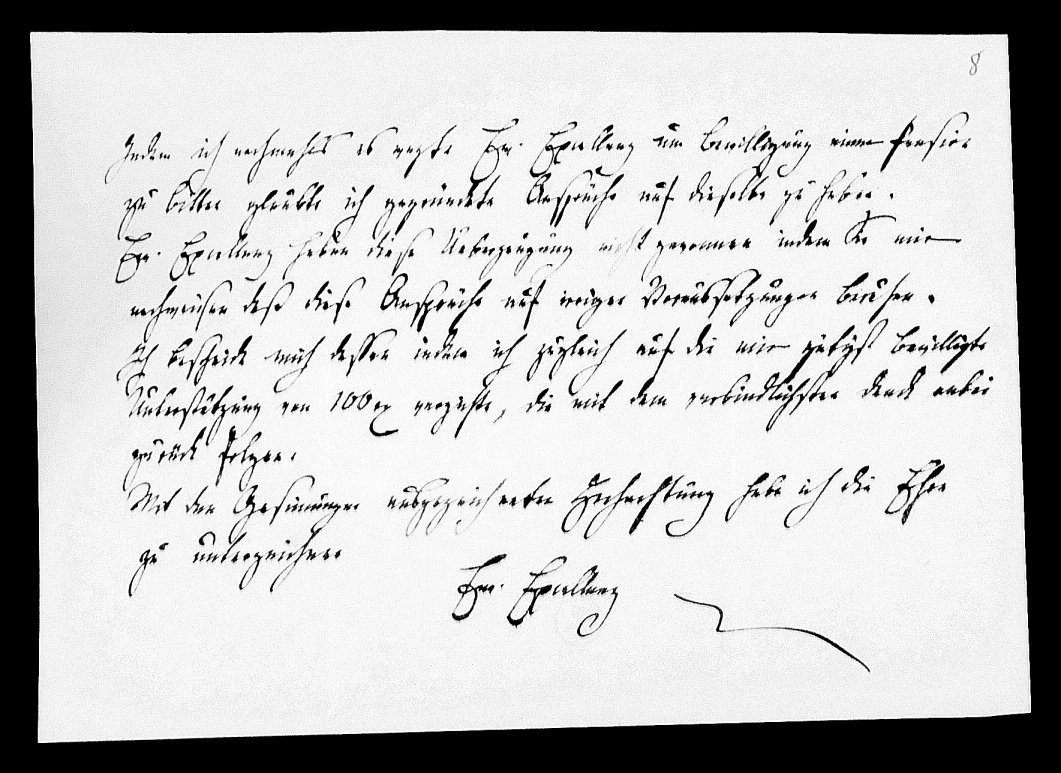 8
Indem ich nochmahls es wagte Ew. Excellenz um Bewilligung einer Pension
zu bitten glaubte ich gegründete Ansprüche auf dieselbe zu haben.
Ew. Excellenz haben diese Ueberzeugung nicht gewonnen indem Sie mir
nachweisen daß diese Ansprüche auf irrigen Voraussetzungen beruhen.
Ich bescheide mich dessen indem ich zugleich auf die mir gütigst bewilligte
Unterstützung von 100 verzichte, die mit dem verbindlichsten Dank anbei
zurück folgen.
Mit den Gesinnungen ausgezeichneter Hochachtung habe ich die Ehre
zu unterzeichnen
Ew. Excellenz